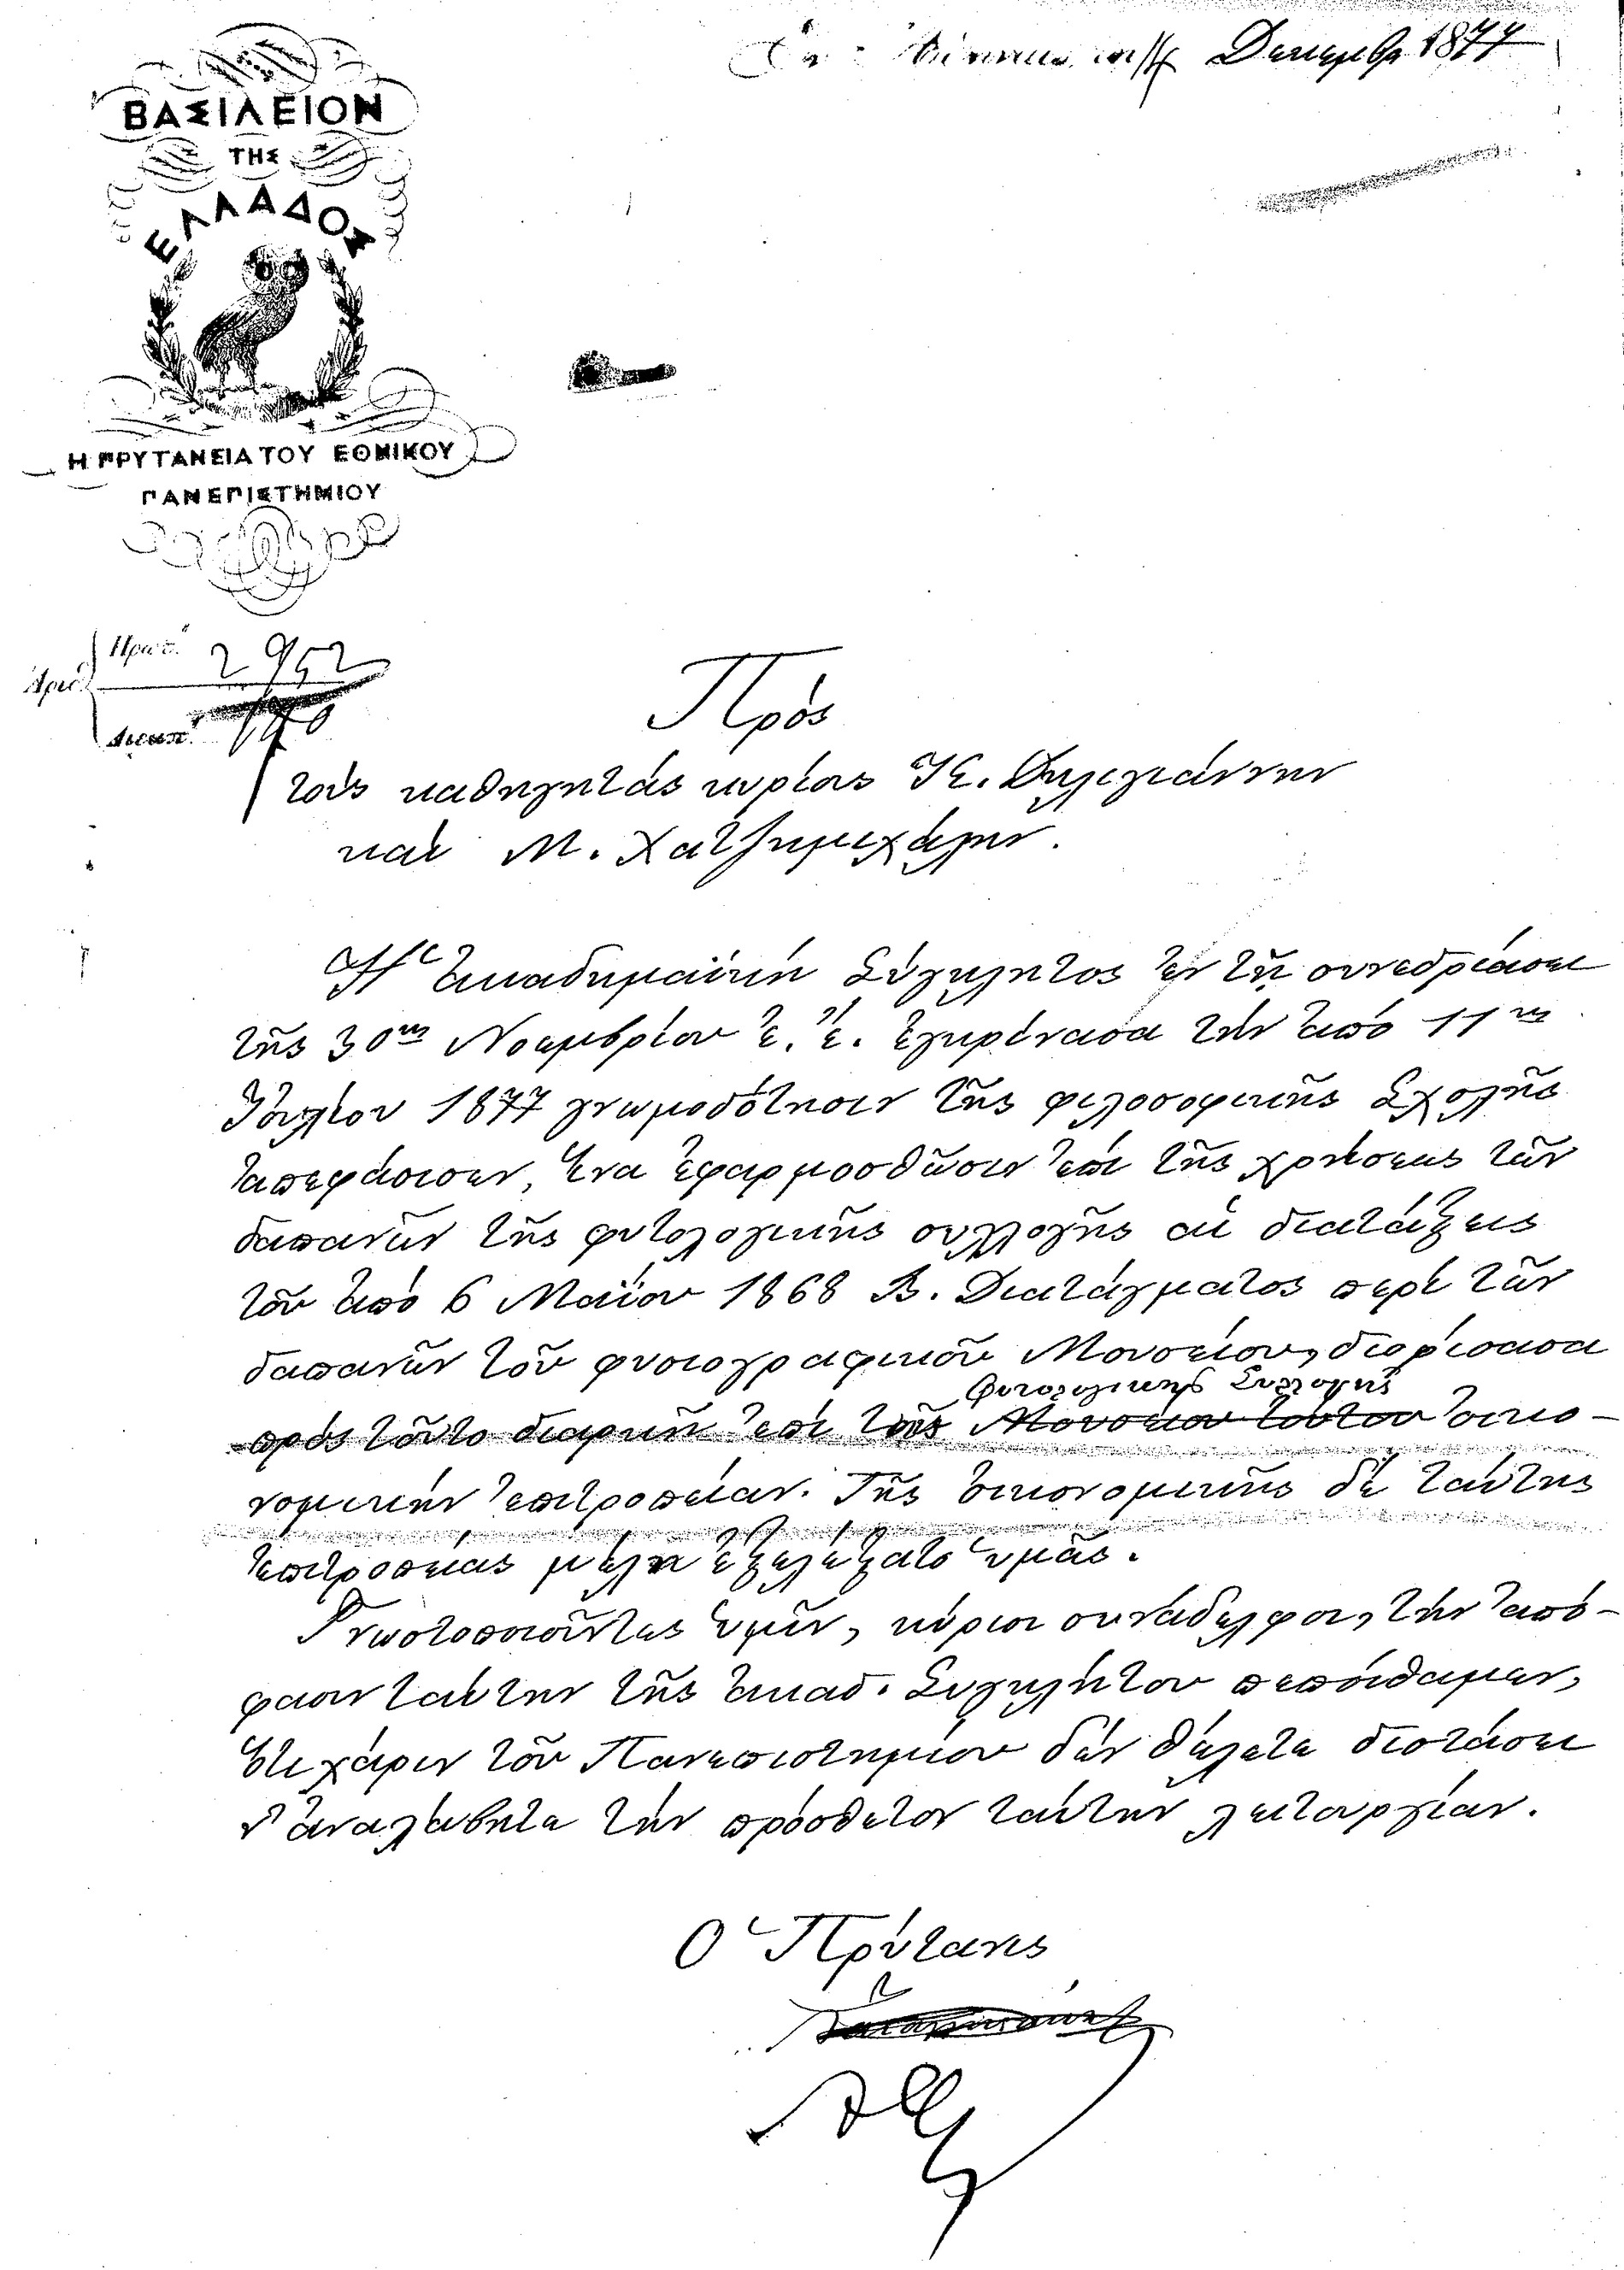 Δεκεμβρ 1877
ΒΑΣΙΛΕΙΟΝ
ΤΗΣ
ΕΛΛΑΔΟΣ
Η ΠΡΥΤΑΝΕΙΑ ΤΟΥ ΕΘΝΙΚΟΥ
ΠΑΝΕΠΙΣΤΗΜΙΟΥ
Πρωτ. 2952
Ἀριθ.
Διεκπ.
Πρός
τούς καθηγητάς κυρίους Ἰ. Δηλιγιάννην
καί Μ. Χατζημιχάλην.
Ἡ Ἀκαδημαϊκή Σύγκλητος ἐν τῇ συνεδριάσει
τῆς 30ης Νοεμβρίου ἐ. ἔ. ἐγκρίνασα τήν ἀπό 11ης
Ἰουλίου 1877 γνωμοδότησιν τῆς φιλοσοφικῆς Σχολῆς
ἀπεφάσισεν, ἵνα ἐφαρμοσθῶσιν ἐπί τῆς χρήσεως τῶν
δαπανῶν τῆς φυτολογικῆς συλλογῆς αἱ διατάξεις
τοῦ ἀπό 6 Μαΐου 1868 Β. Διατάγματος περί τῶν
δαπανῶν τοῦ φυσιογραφικοῦ Μουσείου, διορίσασα
φυτολογικῆς Συλλογῆς
πρός τοῦτο διαρκῆ ἐπί τῆς Μουσείου τούτου οἰκο-
νομικήν ἐπιτροπείαν. Τῆς οἰκονομικῆς δέ ταύτης
ἐπιτροπείας μέλη ἐξελέξατο ὑμᾶς.
Γνωστοποιοῦντες ὑμῖν, κύριοι συνάδελφοι, τήν ἀπό-
φασιν ταύτην τῆς ἀκαδ. Συγκλήτου πεποίθαμεν,
ὅτι χάριν τοῦ Πανεπιστημίου δέν θέλετε διστάσει
ν' ἀναλάβητε τήν πρόσθετον ταύτην λειτουργίαν.
Ὁ Πρύτανις